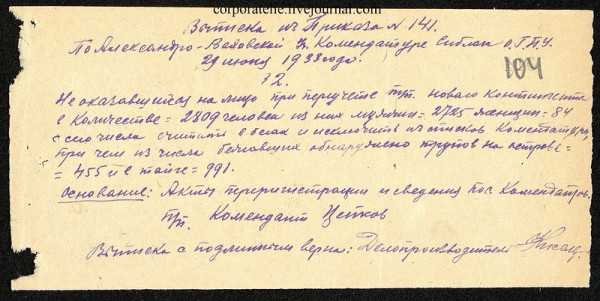 corporatelie.livejournal.com
Выписка из Приказа № 141.
По Александро-Ваховской Уч. Комендатуре Сиблаг О.Г.П.У.
29 июня 1933 года.
104
§ 2.
Не оказавшихся на лицо при переучете т/п. нового контингента
в количестве = 2809 человек из них мужчин = 2725 женщин = 84
с сего числа считать в бегах и исключить из списков Комендатуры,
при чем из числа бежавших обнаружено трупов на острове =
= 455 и в тайге = 991.
Основание: Акты перерегистрации и сведения пос. Комендатров.
п/п. Комендант Цепков
Выписка с подлинным верна: Делопроизводитель